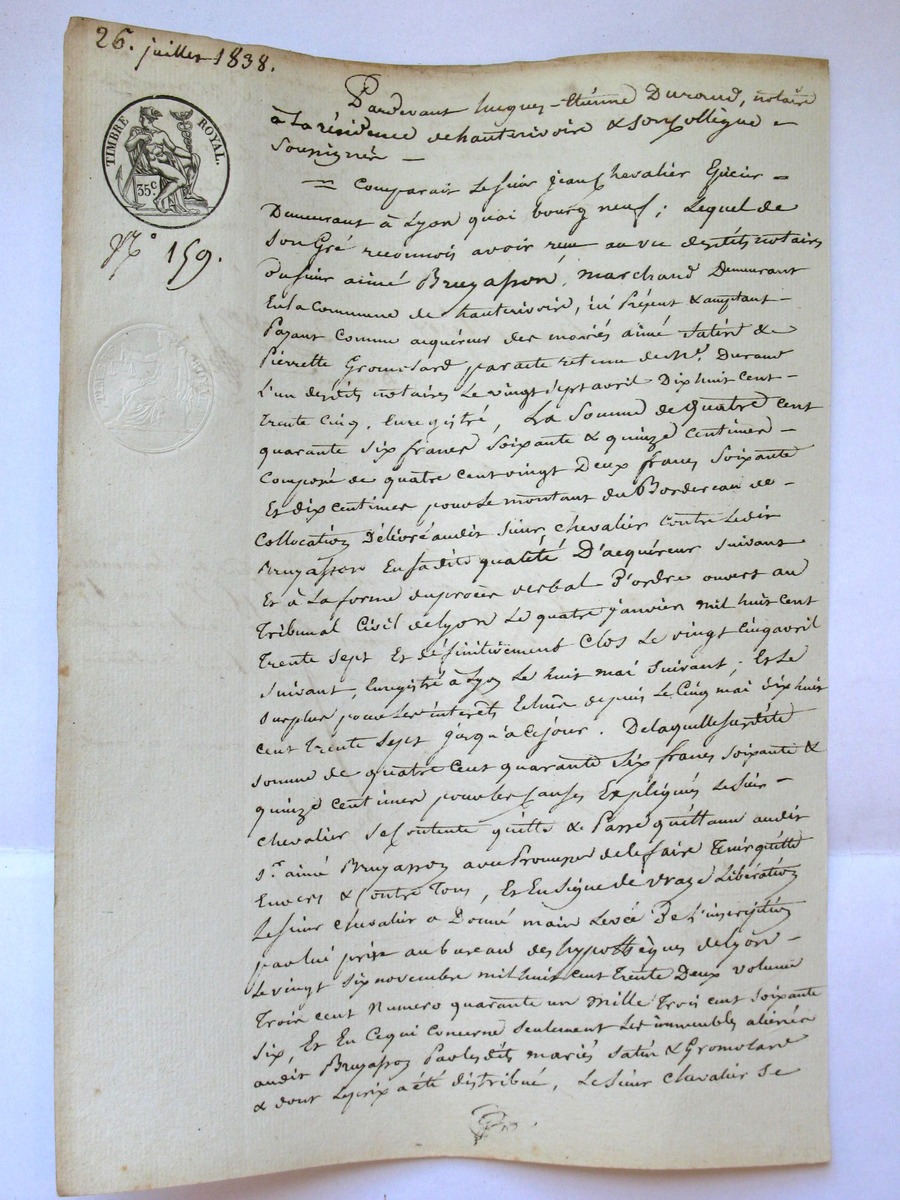 26. juillet 1838.
TIMBRE ROYAL.
35c
N° 159.
Pardevant Jacques-Etienne Durand, notaire
à la résidence de hauterivoire & son collègue
soussignés
Comparait le sieur jean chevalier Epicier
Demeurant à Lyon quai bourgneuf; Lequel de
son Gré reconnois avoir reçu au vu desdits notaires
du sieur aimé Bruyasson, marchand Demeurant
En la Commune de hauterivoire, ici Présent & acceptant
Payant Comme acquéreur des mariés aimé Satin &
Pierrette Gromolard par acte retenu de Me. Durand
L'un desdits notaires Le vingt sept avril Dix huit cent
trente Cinq, Enregistré, La Somme de quatre cent
quarante six francs soixante & quinze Centimes
Composé de quatre cent vingt Deux francs soixante
Et dix centimes pour Le montant du Bordereau de
Collocation Délivré audit sieur chevalier contre Ledit
Bruyasson En sadite qualité D'acquéreur suivant
Et à La forme du procès verbal D'ordre ouvert au
Tribunal Civil de lyon Le quatre janvier mil huit cent
trente sept Et définitivement Clos Le vingt cinq avril
suivant, Enregistré à Lyon Le huit mai suivant; Et Le
surplus pour Les intérêts Echus depuis Le Cinq mai dix huit
cent trente sept jusqu'à ce jour. De laquelle susdite
somme de quatre cent quarante six francs soixante &
quinze centimes pour les causes Expliqués Le sieur
chevalier se contente quitte & Passe quittance audit
Sr. aimé Bruyasson avec Promesse de le faire tenir quitte
Envers & Contre Tous, Et En signe de vraye Libération
Le sieur chevalier a Donné main Levée De L'inscription
par lui prise au bureau des hypothèques de lyon
Le vingt six novembre mil huit cent trente Deux volume
Trois cent Numero quarante un mille Trois cent soixante
six, Et En Ce qui Concerne seulement Les immeubles aliénés
audit Bruyasson Par lesdits mariés Satin & Gromolard
& dont Le prix a été distribué, Le sieur Chevalier se